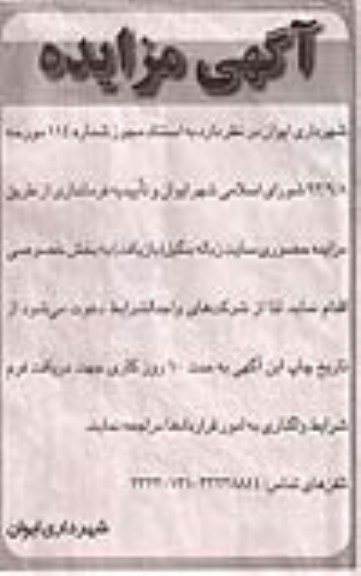 آگهی مزایده
شهرداری ایوان در نظر دارد به استناد مجوز شماره ۱۱۴ مورخه
شورای اسلامی شهر ایوان و تأییدیه فرمانداری از طریق
مزایده حضوری سایت زباله بنگول (بازیافت) به بخش خصوصی
اقدام نماید. لذا از شرکت‌های واجدالشرایط دعوت می‌شود از
تاریخ چاپ این آگهی به مدت ۱۰ روز کاری جهت دریافت فرم
شرایط واگذاری به امور قراردادها مراجعه نمایند.
تلفن‌های تماس:
شهرداری ایوان